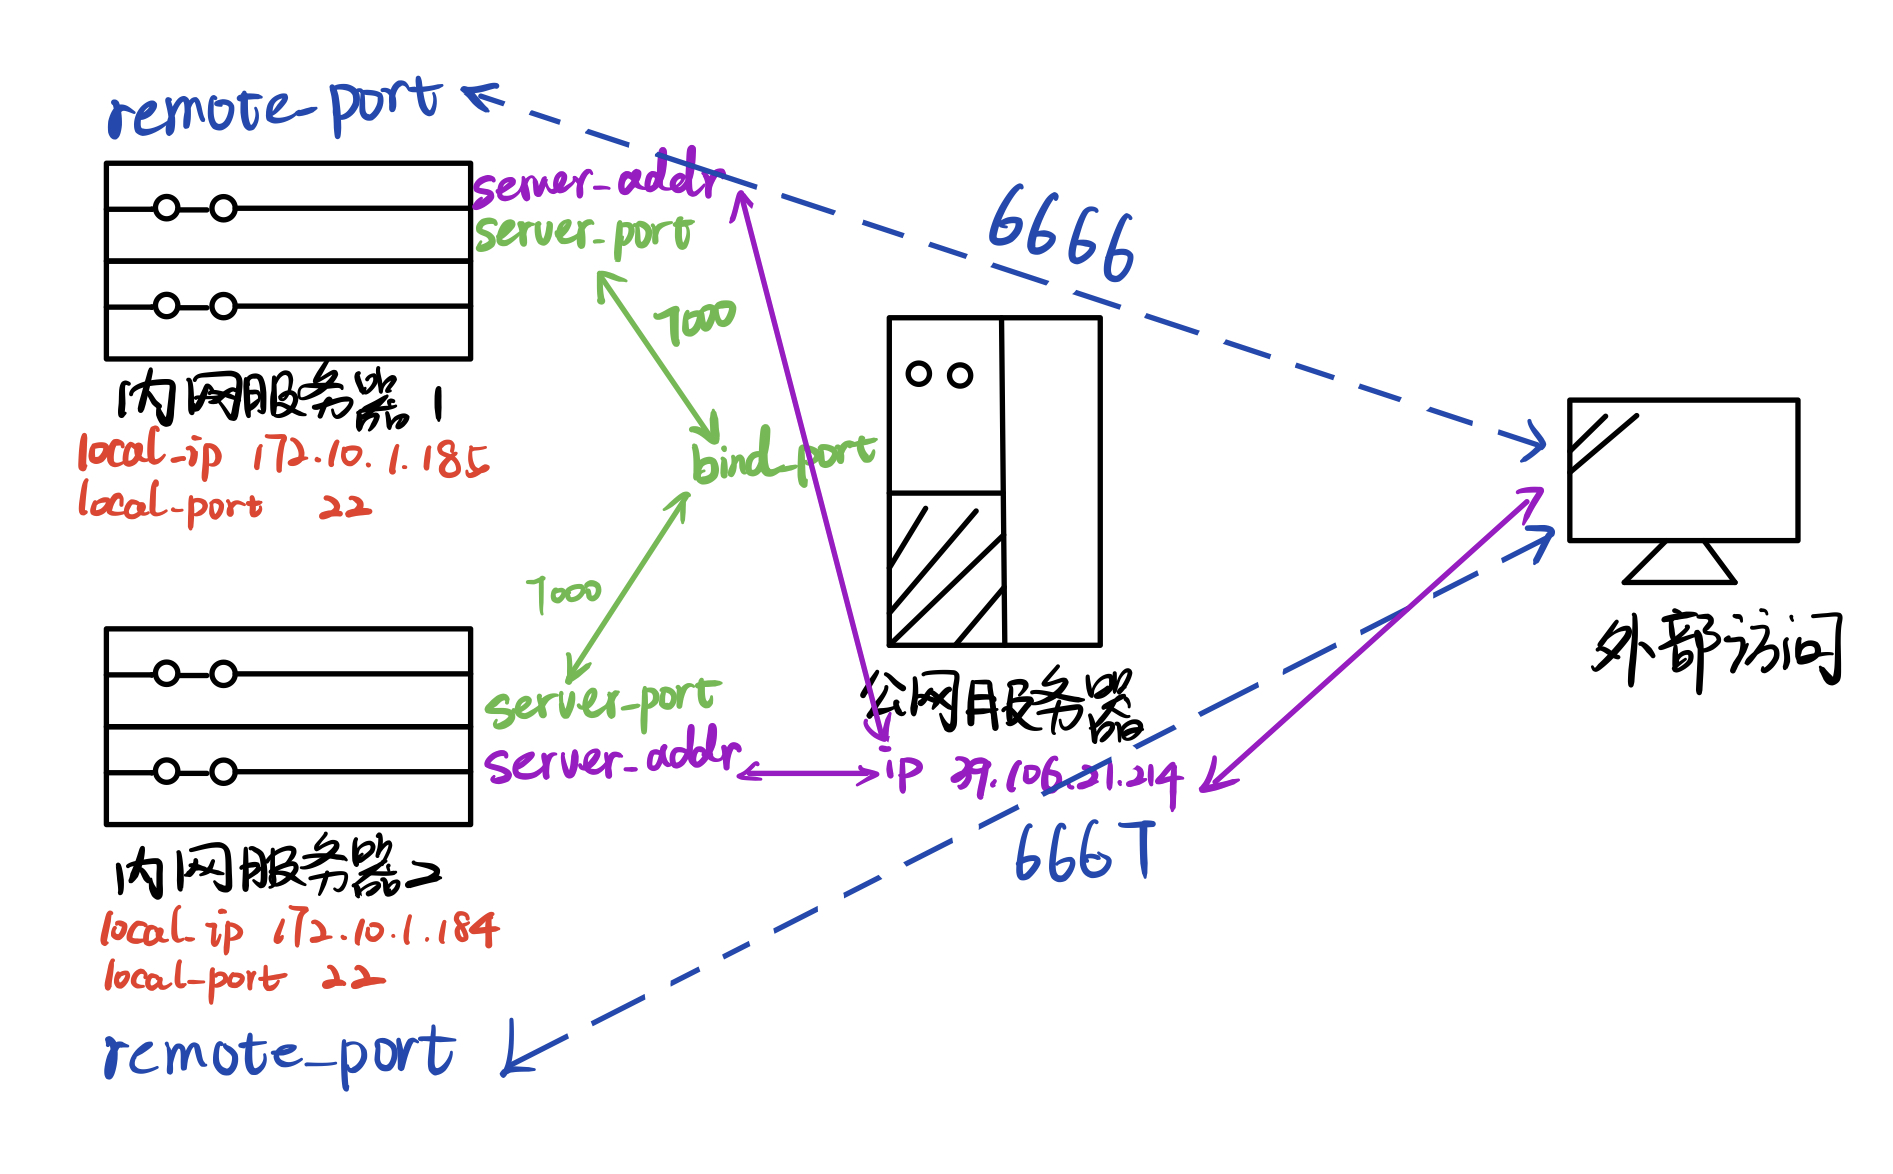 remote_port
server_addr
server_port
6666
7000
内网服务器1
local_ip 172.10.1.185
local_port 22
bind_port
7000
外部访问
server_port
公网服务器
server_addr
ip 39.106.21.214
6667
内网服务器2
local_ip 172.10.1.184
local_port 22
remote_port